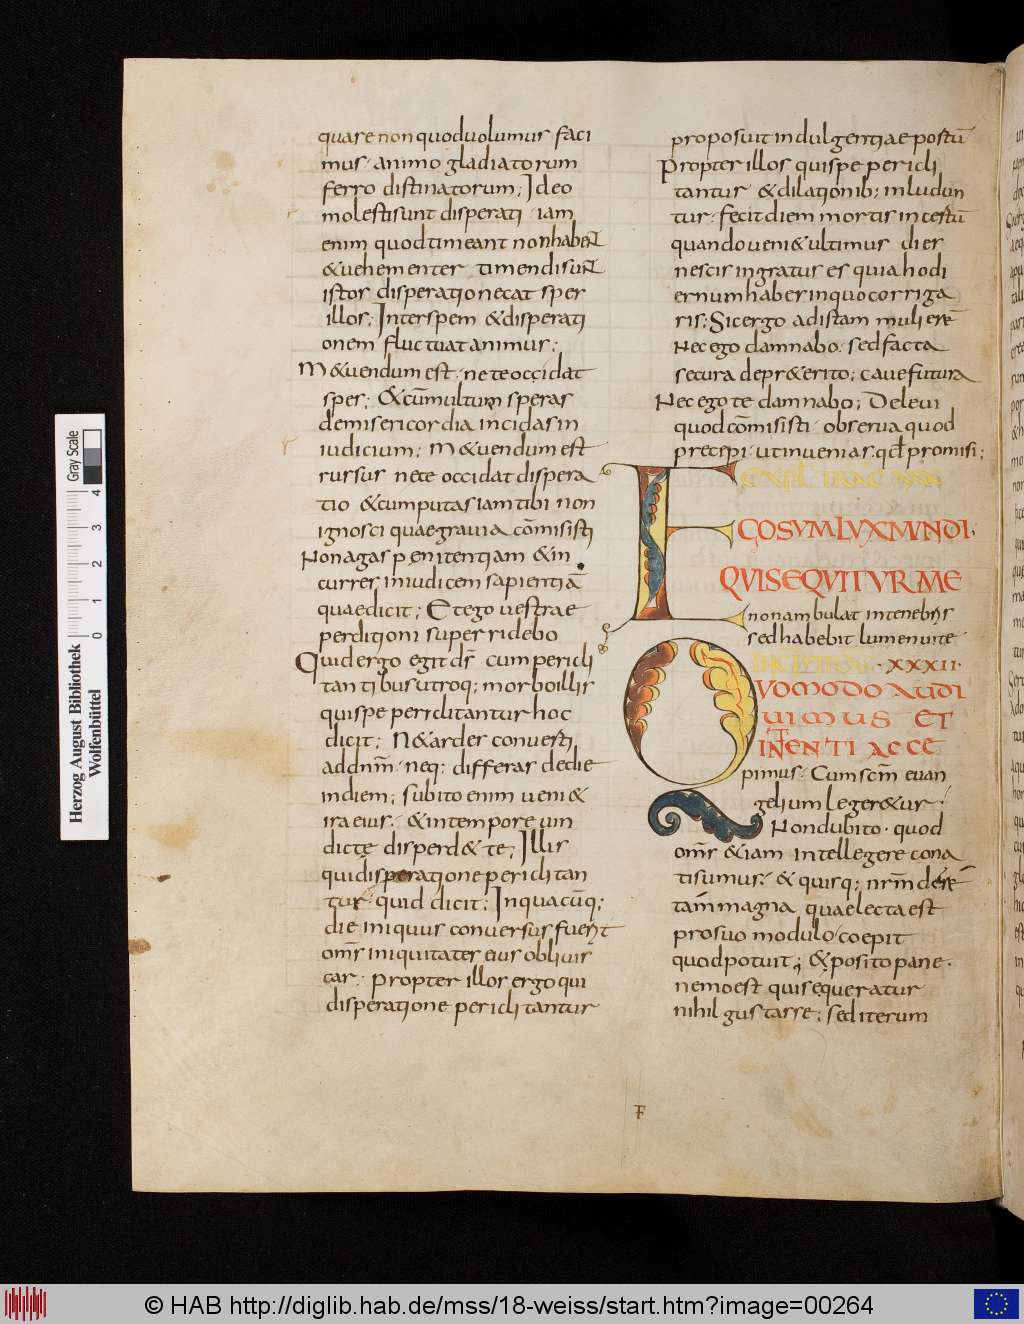 quare non quod uolumus faci
mus. animo gladiatorum
ferro distinatorum; Ideo
molesti sunt disperati. iam
enim quod timeant non habent
& uehementer timendi sunt
istos disperatio necat spes
illos; Inter spem & disperati
onem fluctuat animus;
M&uendum est. ne te occidat
spes; & cū multum speras
de misericordia incidas in
iudicium; M&uendum est
rursus ne te occidat dispera
tio & cum putas iam tibi non
ignosci quae grauia cōmisisti
Non agas penitentiam & in
curres in iudicem sapientiā
quae dicit; Et ego uestrae
perditioni superridebo
Quid ergo egit dŝ cum pericli
tantibus utroq; morbo illis
qui spe periclitantur hoc
dicit; Ne tardes conuerti
ad dnm̄. neq; differas de die
in diem; subito enim ueni&
ira eius. & in tempore uin
dicte disperd& te; Illis
qui disperatione periclitan
tur. quid dicit; In quacūq;
die iniquus conuersus fuerit
omŝ iniquitates eius obliuis
car. Propter illos ergo qui
disperatione periclitantur
proposuit indulgentiae postū
Propter illos qui spe pericli
tantur & dilationib; inludun
tur. fecit diem mortis incestū
quando ueni& ultimus dies
nescis ingratus es quia hodi
ernum habes in quo corriga
ris; Sic ergo ad istam mulierē
Nec ego damnabo. sed facta
secura de pr&erito; caue futura
Nec ego te damnabo; Deleui
quod cōmisisti. obserua quod
precepi. ut inuenias. qd̄ promisi;
EXPL TRAC
EGO SVM LVX MVNDI.
QVI SEQVITVR ME
non ambulat in tenebris
sed habebit lumen uite
XXXII.
QVOMODO AUDI
UIMUS ET
INTENTI ACCE
pimus. Cum sc̄m euan
gelium leger&ur.
Non dubito. quod
omŝ &iam intellegere cona
ti sumus. & quisq; nrm̄ de re
tam magna quae lecta est
pro suo modulo coepit
quod potuit; & posito pane.
nemo est qui se queratur
nihil gustasse; sed iterum
F
Herzog August Bibliothek
Wolfenbüttel
0 1 2 3 4
Gray Scale
© HAB http://diglib.hab.de/mss/18-weiss/start.htm?image=00264